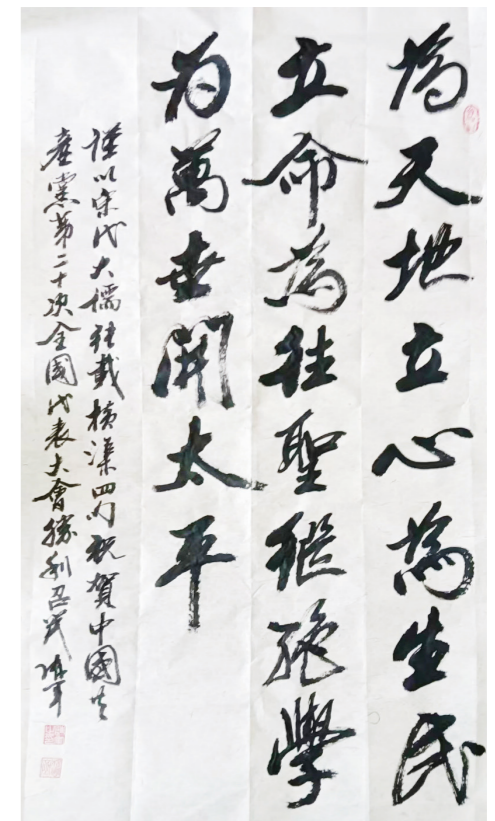 為天地立心為生民
立命為往聖繼絕學
为萬世開太平
謹以宋代大儒張載橫渠四句祝賀中國共
產黨第二十次全國代表大會勝利召開